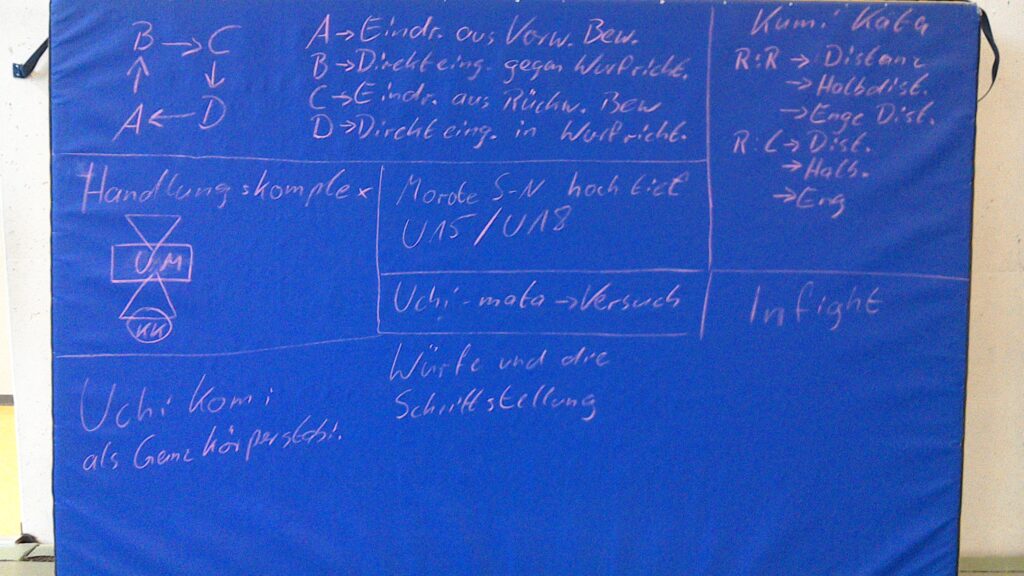 B → C
A ← D
A → Eindr. aus Vorw. Bew.
B → Direkt eing. gegen Wurfricht.
C → Eindr. aus Rückw. Bew
D → Direkt eing. in Wurfricht.
Kumi Kata
R:R → Distanz
→ Halbdist.
→ Enge Dist.
R:L → Dist.
→ Halb.
→ Eng
Handlungskomplex
UM
KK
Morote S-N hoch tief
U15/U18
Uchi-mata → Versuch
Infight
Würfe und die
Schrittstellung
Uchi Komi
als Ganzkörperstabi.